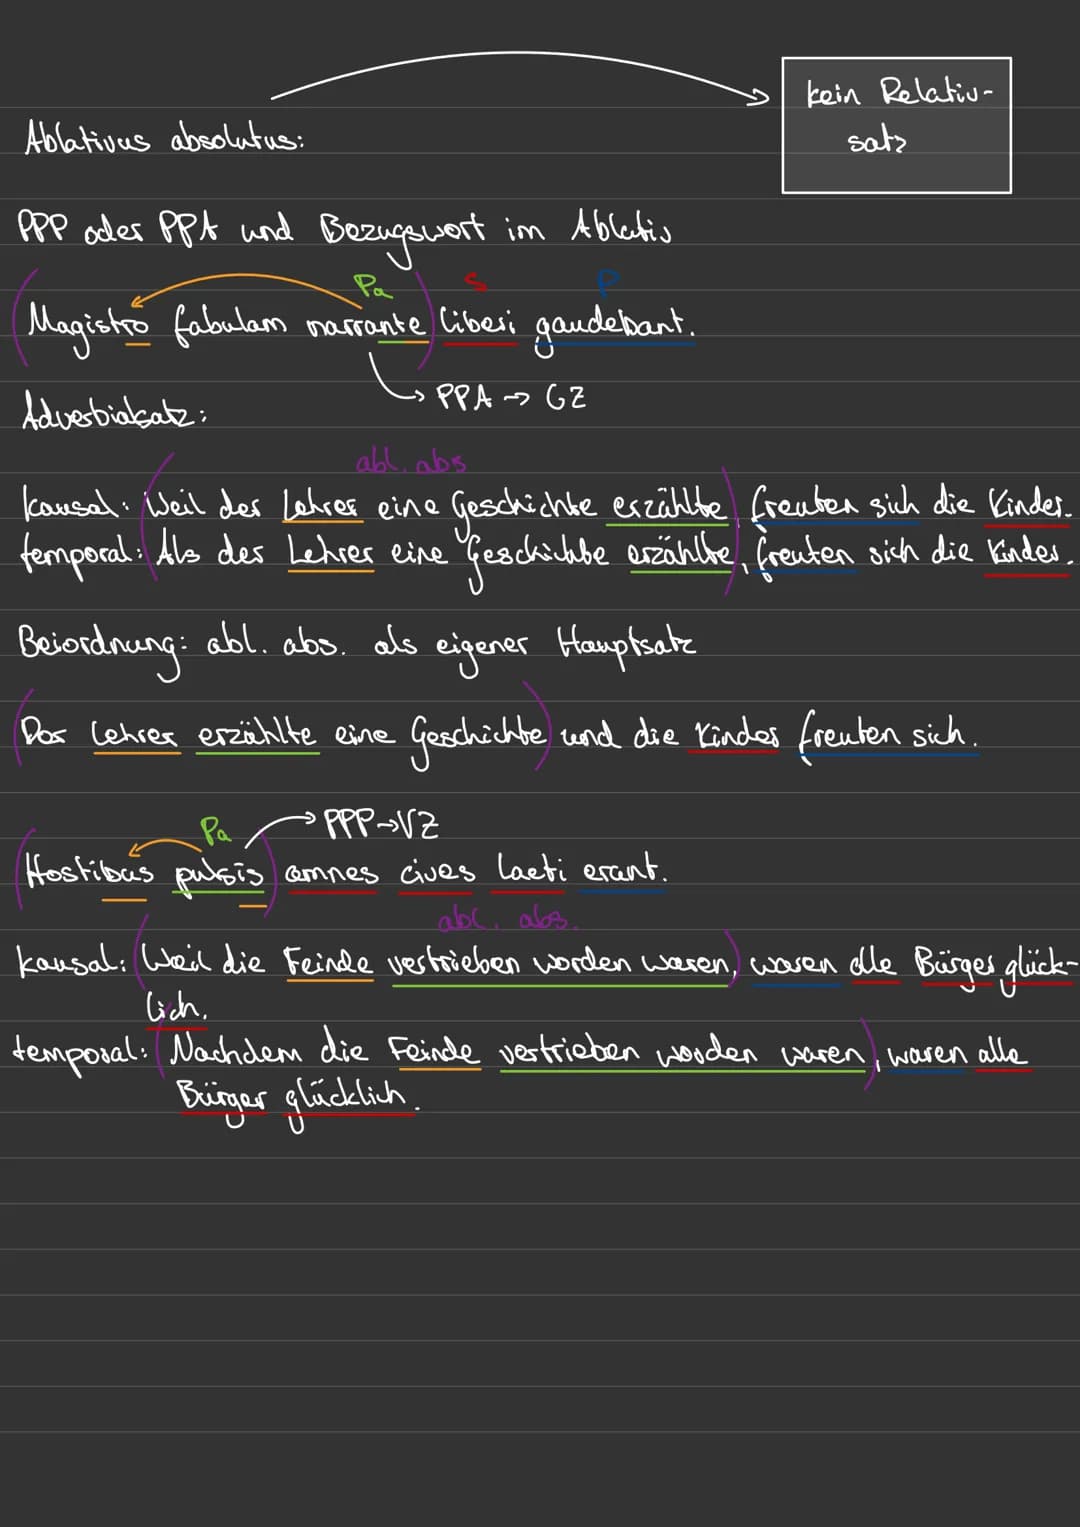 kein Relativ-
satz
Ablativus absolutus:
PPP oder PPA und Bezugswort im Ablativ
Pa S P
(Magistro fabulam narrante) liberi gaudebant.
→ PPA → GZ
Adverbialsatz:
abl. abs
kausal: (Weil der Lehrer eine Geschichte erzählte), freuten sich die Kinder.
temporal: (Als der Lehrer eine Geschichte erzählte), freuten sich die Kinder.
Beiordnung: abl. abs. als eigener Hauptsatz
(Der Lehrer erzählte eine Geschichte) und die Kinder freuten sich.
Pa → PPP → VZ
(Hostibus pulsis) omnes cives laeti erant.
abl. abs.
kausal: (Weil die Feinde vertrieben worden waren,) waren alle Bürger glück-
lich.
temporal: (Nachdem die Feinde vertrieben worden waren), waren alle
Bürger glücklich.